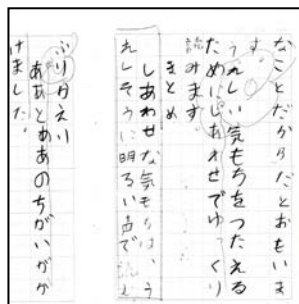 なことだからだとおもいま
す。
うれしい気もちをつたえる
ためにしあわせでゆっくり
読みます。
まとめ
しあわせな気もちは、う
れしそうに明るい声で読む
ふりかえり
ああとあぁのちがいがが
けました。